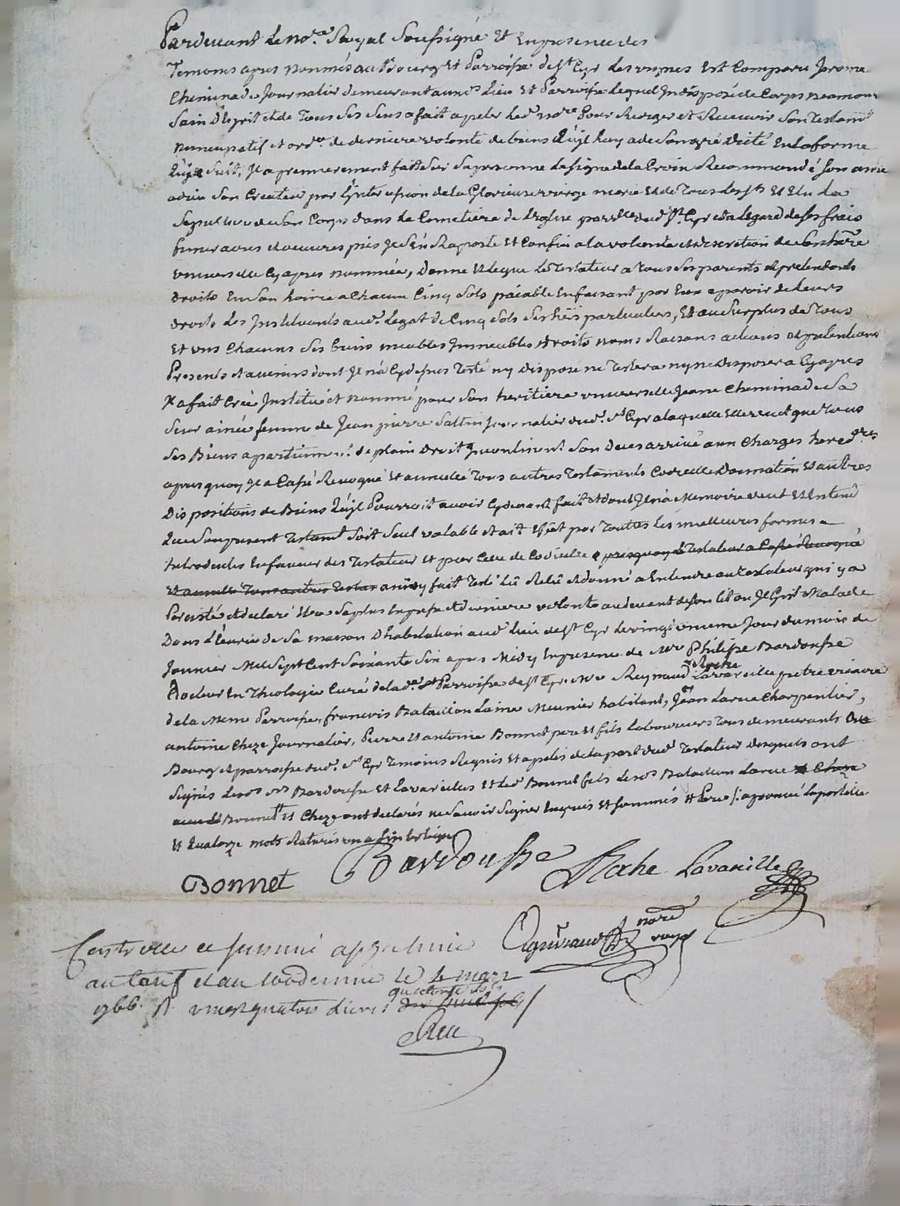 Pardevant le no.re Royal Soussigné Et Enpresence des
Temoins apres nommés au Bourg Et Parroisse de St Cyr Les vignes Est Comparu Jerome
Cheminade Journalier demeurant aud. Lieu Et Parroisse Lequel Indisposé de Corps neamoins
Sain d'Esprit et de Tous Ses Sens a fait apeler led. no.re Pour Rediger et Recevoir Son Testamt
nuncupatif Et ordre de derniere volonté de biens Qu'yl huy a de Son gré Dicté En la forme
Qui Suit, Il a premierement fait Sur Sa personne Le Signe de la Croix Recommandé Son ame
a dieu Son Createur par L'Intersession de la Glorieuse vierge marie Et de Tous les Sts Et Elu La
Sepulture de Son Corps dans le Cemetiere de L'eglise parr.lle dud. St Cyr Et a Legard de Ses frais
funeraires et œuvres pies Je S'En Raporte Et Confie a la volonté et discretion de Son here
universelle Cy apres nommée, Donne Et Legue Le Testateur a Tous Ses parents et pretendants
droits En Son hoirie a Chacun Cinq Sols païable En faisant par Eux aparoir de Leurs
droits Les Instituants aud. Legat de Cinq Sols Ses hers particuliers, Et au Surplus de Tous
Et uns Chacuns Ses biens meubles Immeubles droits noms Raisons actions et pretentions
Presents et avenirs dont Je n'a Cy dessus Testé ny disposé ne Testera ny ne disposera Cy apres
Il a fait Créé Institué et nommé pour Son heritiere universelle Jeane Cheminade Sa
Sœur ainée femme de Jean pierre Journalier dud. St Cyr a laquelle Il veut que Tous
Ses Biens apartiennt de plain Droit Incontinent Son Deces arrivé aux Charges heredres
apres quoy Il a Cassé Revoqué Et annullé Tous autres Testaments Codicille Donnation Et autres
Dispositions de Biens Qu'yl Pourroit avoir Cydevant fait et dont Je n'a Memoire veut Et Entend
Que Son present Testamt Soit Seul valable Et ait Effet par Toutes Les meilleures formes
Introduites En faveur des Testateur Et par Celle de Codicille apres quoy Le Testateur a Cassé Revoqué
Et annullé Tous autres Testat ainsy fait Testé Lû Relû Et donné a Entendre au Testateur qui y a
Persisté Et declaré Etre Sa plus Expresse Et derniere volonté au devant de Son lit ou Il Git Malade
Dans L'Curie de Sa maison D'habitation aud. Lieu de St Cyr Le vingt unieme Jour du mois de
Janvier Mil Sept Cent Soixante Six apres Midy En presence de Mre Philipe Bardousse
Docteur En Theologie Curé de lad. Parroisse de St Cyr, Mre Reymaud Roche Lavareille pretre vicaire
de la Meme Parroisse, francois Bataillon Laine Meunier habitant, Jean Larue Charpentier,
antoine Cheze Journalier, Pierre Et antoine Bonnet pere et fils Laboureurs Tous demeurants
Bourg Et parroisse dud. St Cyr Temoins Requis et apelés de la part dud. Testateur desquels ont
Signés Les Srs Bardousse Et Lavareille Et led. Bonnet fils Les Bataillon Larue Cheze
Bonnet Et Cheze ont declarés ne Savoir Signer Enquis Et Sommés Et pere /: aprouvé
Et Quatorze mots Raturés
Bonnet Bardousse Roche Lavareille
nore royal
Controllé et Insinué a
au tarif et au Centieme le 4 mars
1766 R vingt quatre livres quatorze sols